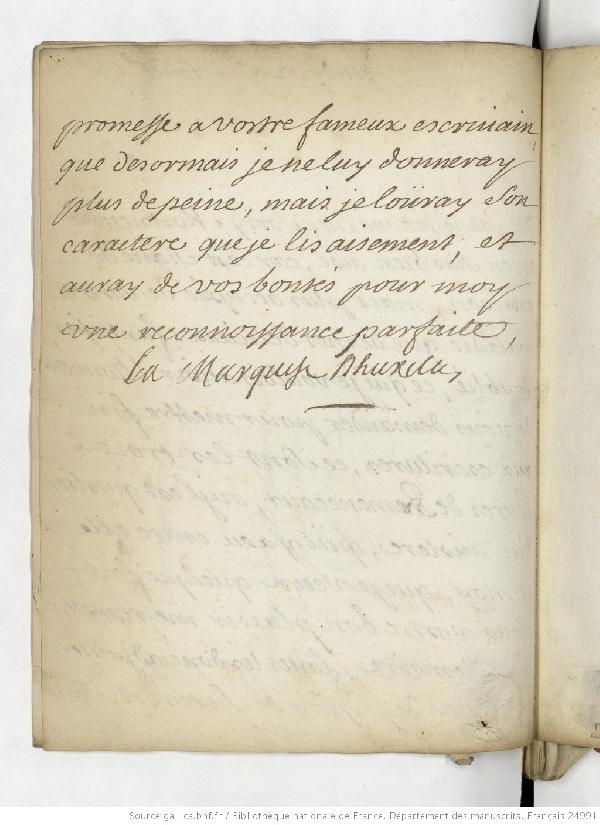 promesse a vostre fameux escriuain,
que desormais je ne luy donneray
plus de peine, mais je loüray son
caractere que je lis aisement, et
auray de vos bontés pour moy
une reconnoissance parfaite,
La Marquise Dhuxelles,
Source gallica.bnf.fr / Bibliothèque nationale de France. Département des manuscrits. Français 24991